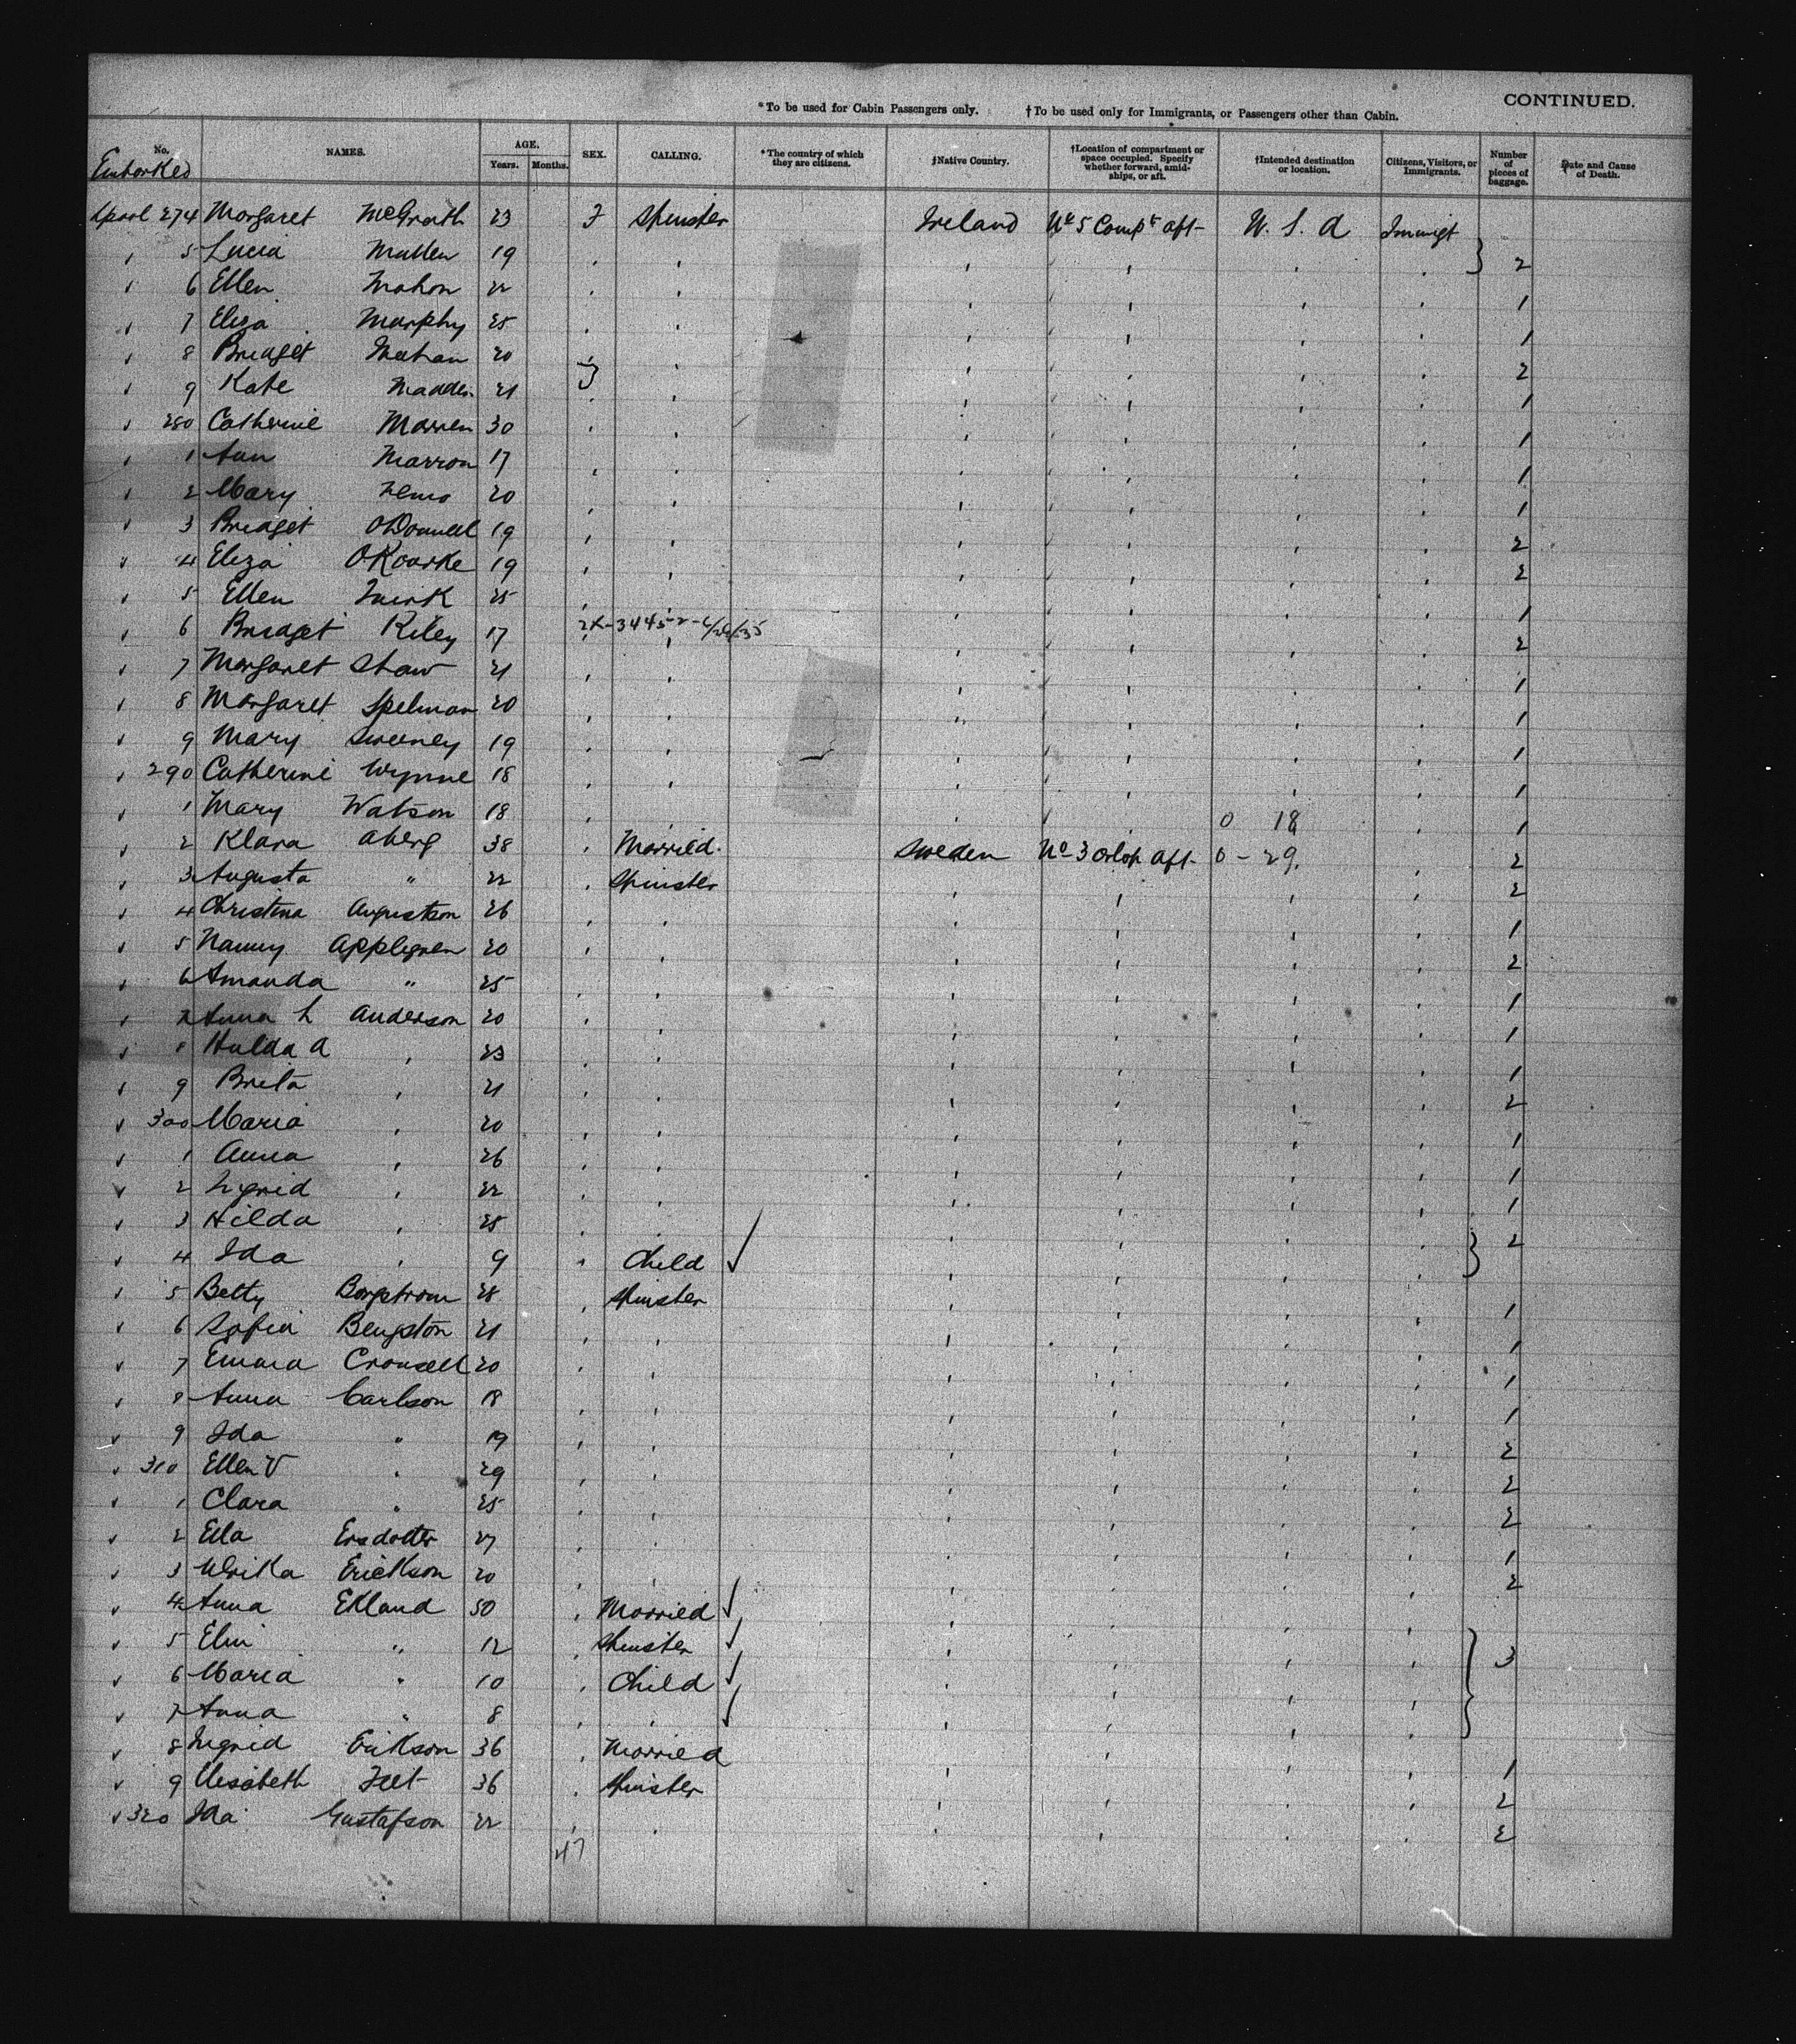 CONTINUED.
*To be used for Cabin Passengers only. †To be used only for Immigrants, or Passengers other than Cabin.
No. NAMES. AGE. Years. Months. SEX. CALLING. *The country of which they are citizens. †Native Country. †Location of compartment or space occupied. Specify whether forward, amid-ships, or aft. †Intended destination or location. Citizens, Visitors, or Immigrants. Number of pieces of baggage. Date and Cause of Death.
Embarked
Lpool 274 Margaret McGrath 23 F Spinster Ireland No 5 Compt aft U.S.A Immigt
" 5 Lucia Mullen 19 " " " " " " } 2
" 6 Ellen Mahon 22 " " " " " " 1
" 7 Eliza Murphy 25 " " " " " " 1
" 8 Bridget Meehan 20 " " " " " " 2
" 9 Kate Madden 21 " " " " " " 1
" 280 Catherine Marren 30 " " " " " " 1
" 1 Ann Marron 17 " " " " " " 1
" 2 Mary 20 " " " " " " 1
" 3 Bridget O'Donnell 19 " " " " " " 2
" 4 Eliza O'Rourke 19 " " " " " " 2
" 5 Ellen 25 " " " " " " 1
" 6 Bridget Riley 17 2X-34452- " " " " 2
" 7 Margaret Shaw 21 " " " " " " 1
" 8 Margaret Spelman 20 " " " " " " 1
" 9 Mary Sweeney 19 " " " " " " 1
" 290 Catherine Wynne 18 " " " " " " 1
" 1 Mary Watson 18 " " " " 0 18 " 1
" 2 Klara Aberg 38 " Married Sweden No 3 Orlop aft 0-29. " 2
" 3 Augusta " 22 " Spinster " " " " 2
" 4 Christina Augustson 26 " " " " " " 1
" 5 Nanny Applegren 20 " " " " " " 2
" 6 Amanda " 25 " " " " " " 1
" 7 Anna L Anderson 20 " " " " " " 1
" 8 Hulda A " 23 " " " " " " 1
" 9 Brita " 21 " " " " " " 2
" 300 Maria " 20 " " " " " " 1
" 1 Anna " 26 " " " " " " 1
" 2 Ingrid " 22 " " " " " " 1
" 3 Hilda " 25 " " " " " " } 2
" 4 Ida " 9 " Child ✓ " " " "
" 5 Betty Borgstrom 28 " Spinster " " " " 1
" 6 Sofia Bengston 21 " " " " " " 1
" 7 Emma Cronsell 20 " " " " " " 1
" 8 Anna Carlson 18 " " " " " " 1
" 9 Ida " 19 " " " " " " 2
" 310 Ellen V " 29 " " " " " " 2
" 1 Clara " 25 " " " " " " 2
" 2 Ella Ersdotter 27 " " " " " " 1
" 3 Ulrika Erickson 20 " " " " " " 2
" 4 Anna Ekland 50 " Married ✓ " " " "
" 5 Elin " 12 " Spinster ✓ " " " " } 3
" 6 Maria " 10 " Child ✓ " " " "
" 7 Anna " 8 " " ✓ " " " "
" 8 Ingrid Erikson 36 " Married " " " " 1
" 9 Elisabeth 36 " Spinster " " " " 2
" 320 Ida Gustafson 22 " " " " " " 2
47